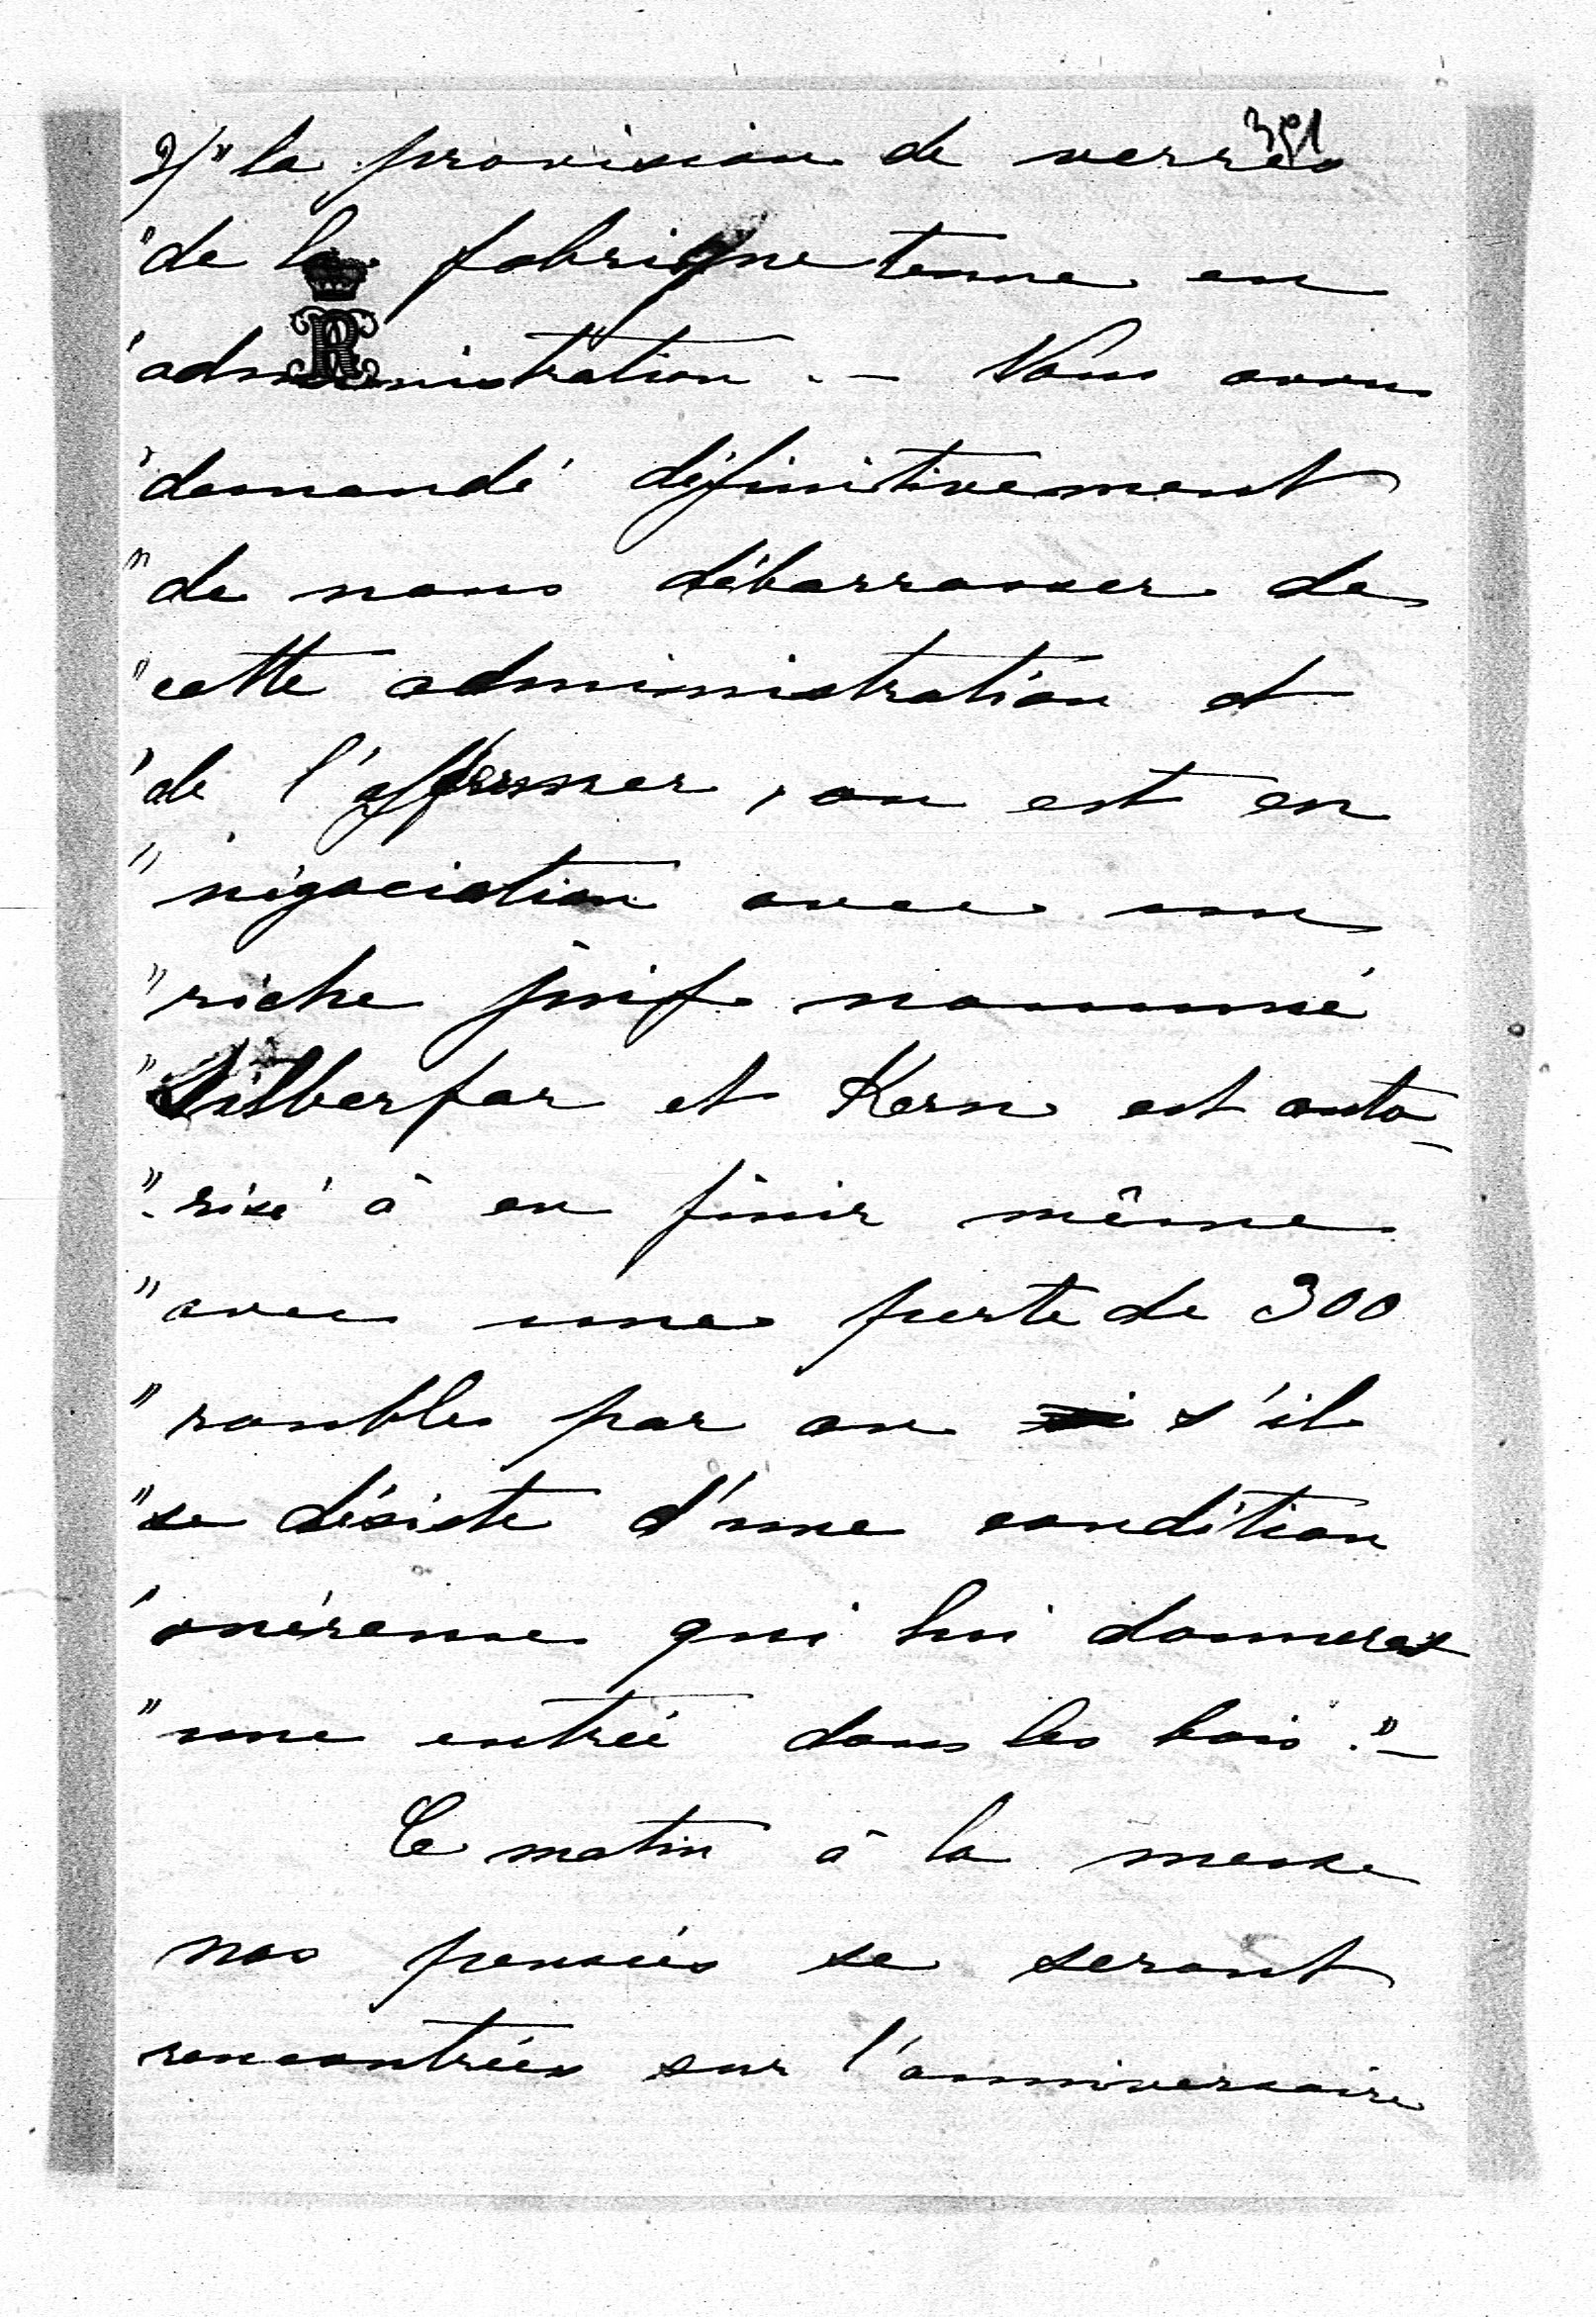 391
2/ "la provision de verres
"de la fabrique tenue en
"administration. — Nous avons
"demandé définitivement
"de nous débarrasser de
"cette administration et
"de l'affermer, on est en
"négociation avec un
"riche juif nommé
"Silberfar et Kern est auto-
"-risé à en finir même
"avec une perte de 300
"roubles par an s'il
"se désiste d'une condition
"onéreuse qui lui donnerait
"une entrée dans les bois." —
Ce matin à la messe
nos pensées se seront
rencontrées sur l'anniversaire